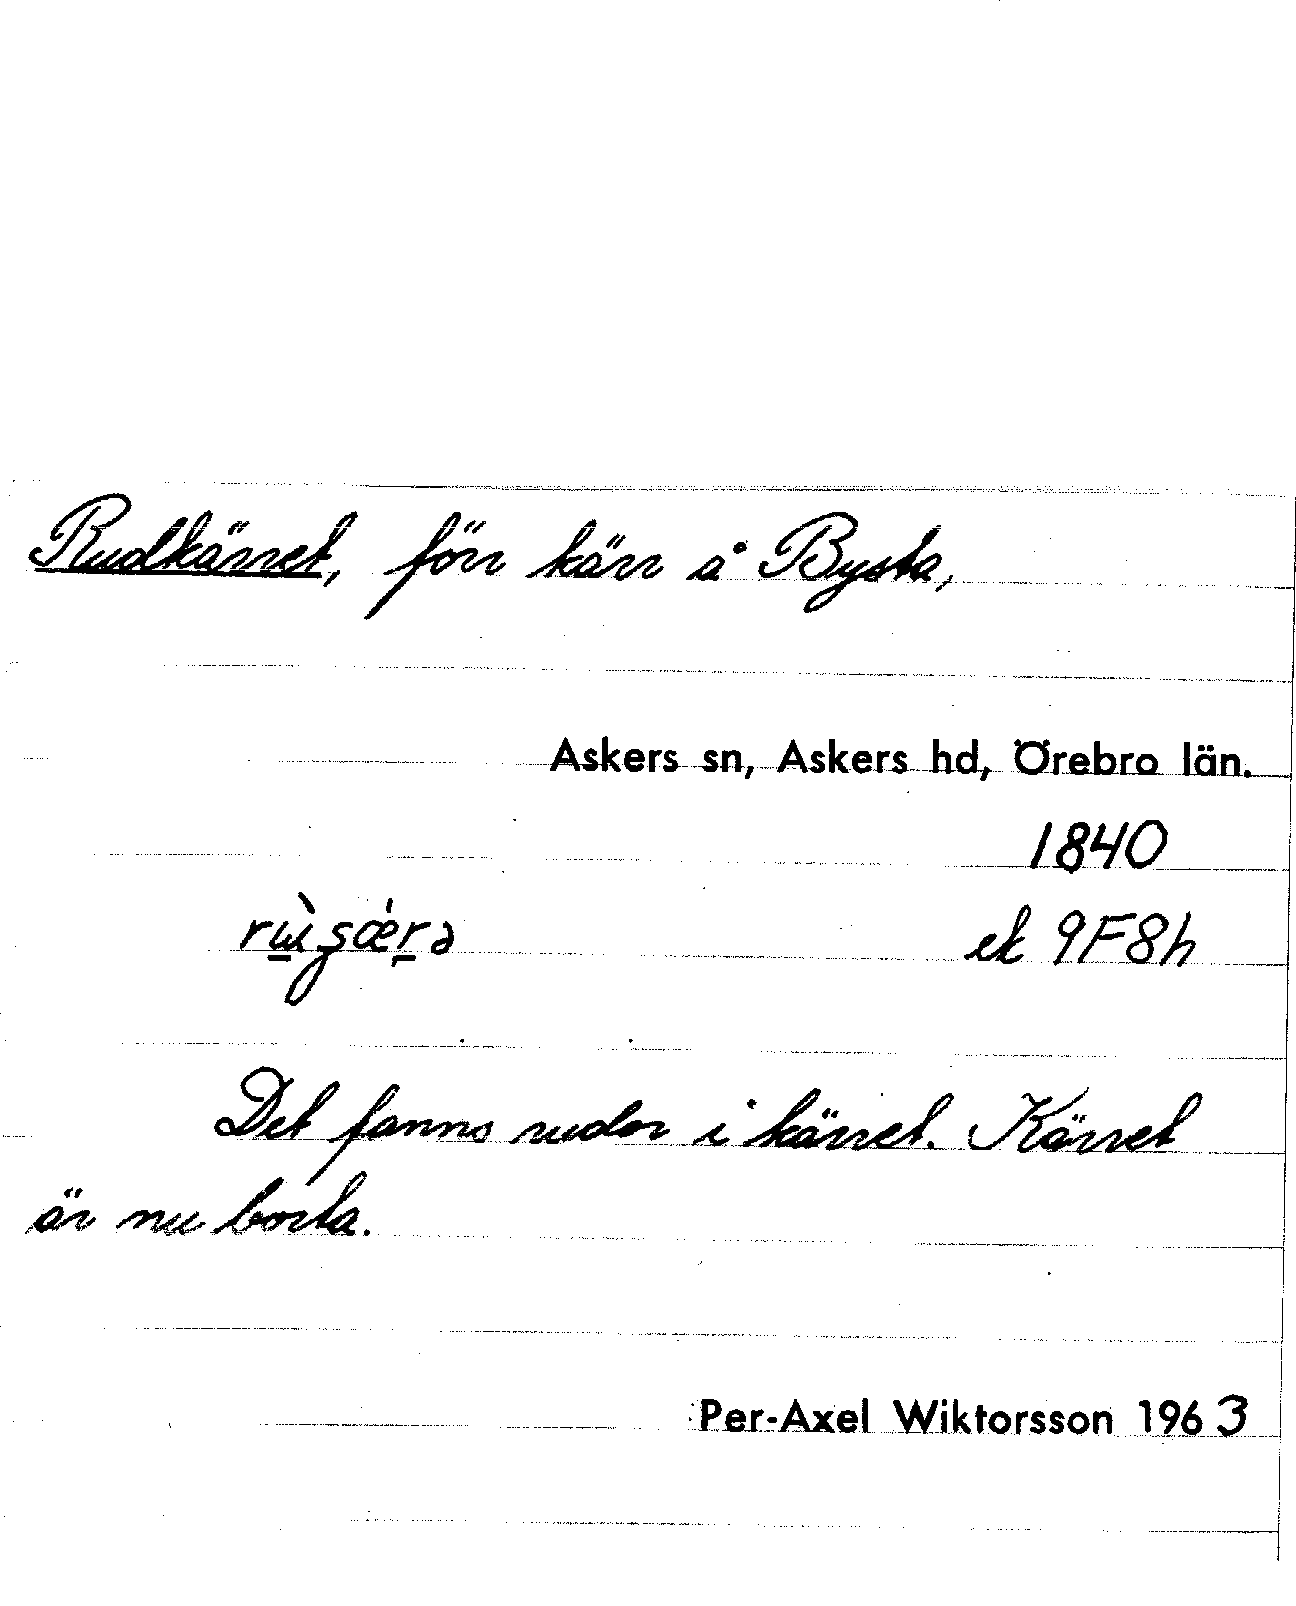 Rudkärret, förr kärr å Bysta,
Askers sn, Askers hd, Örebro län.
1840
ek 9F8h
Det fanns rudor i kärret. Kärret
är nu borta.
Per-Axel Wiktorsson 1963